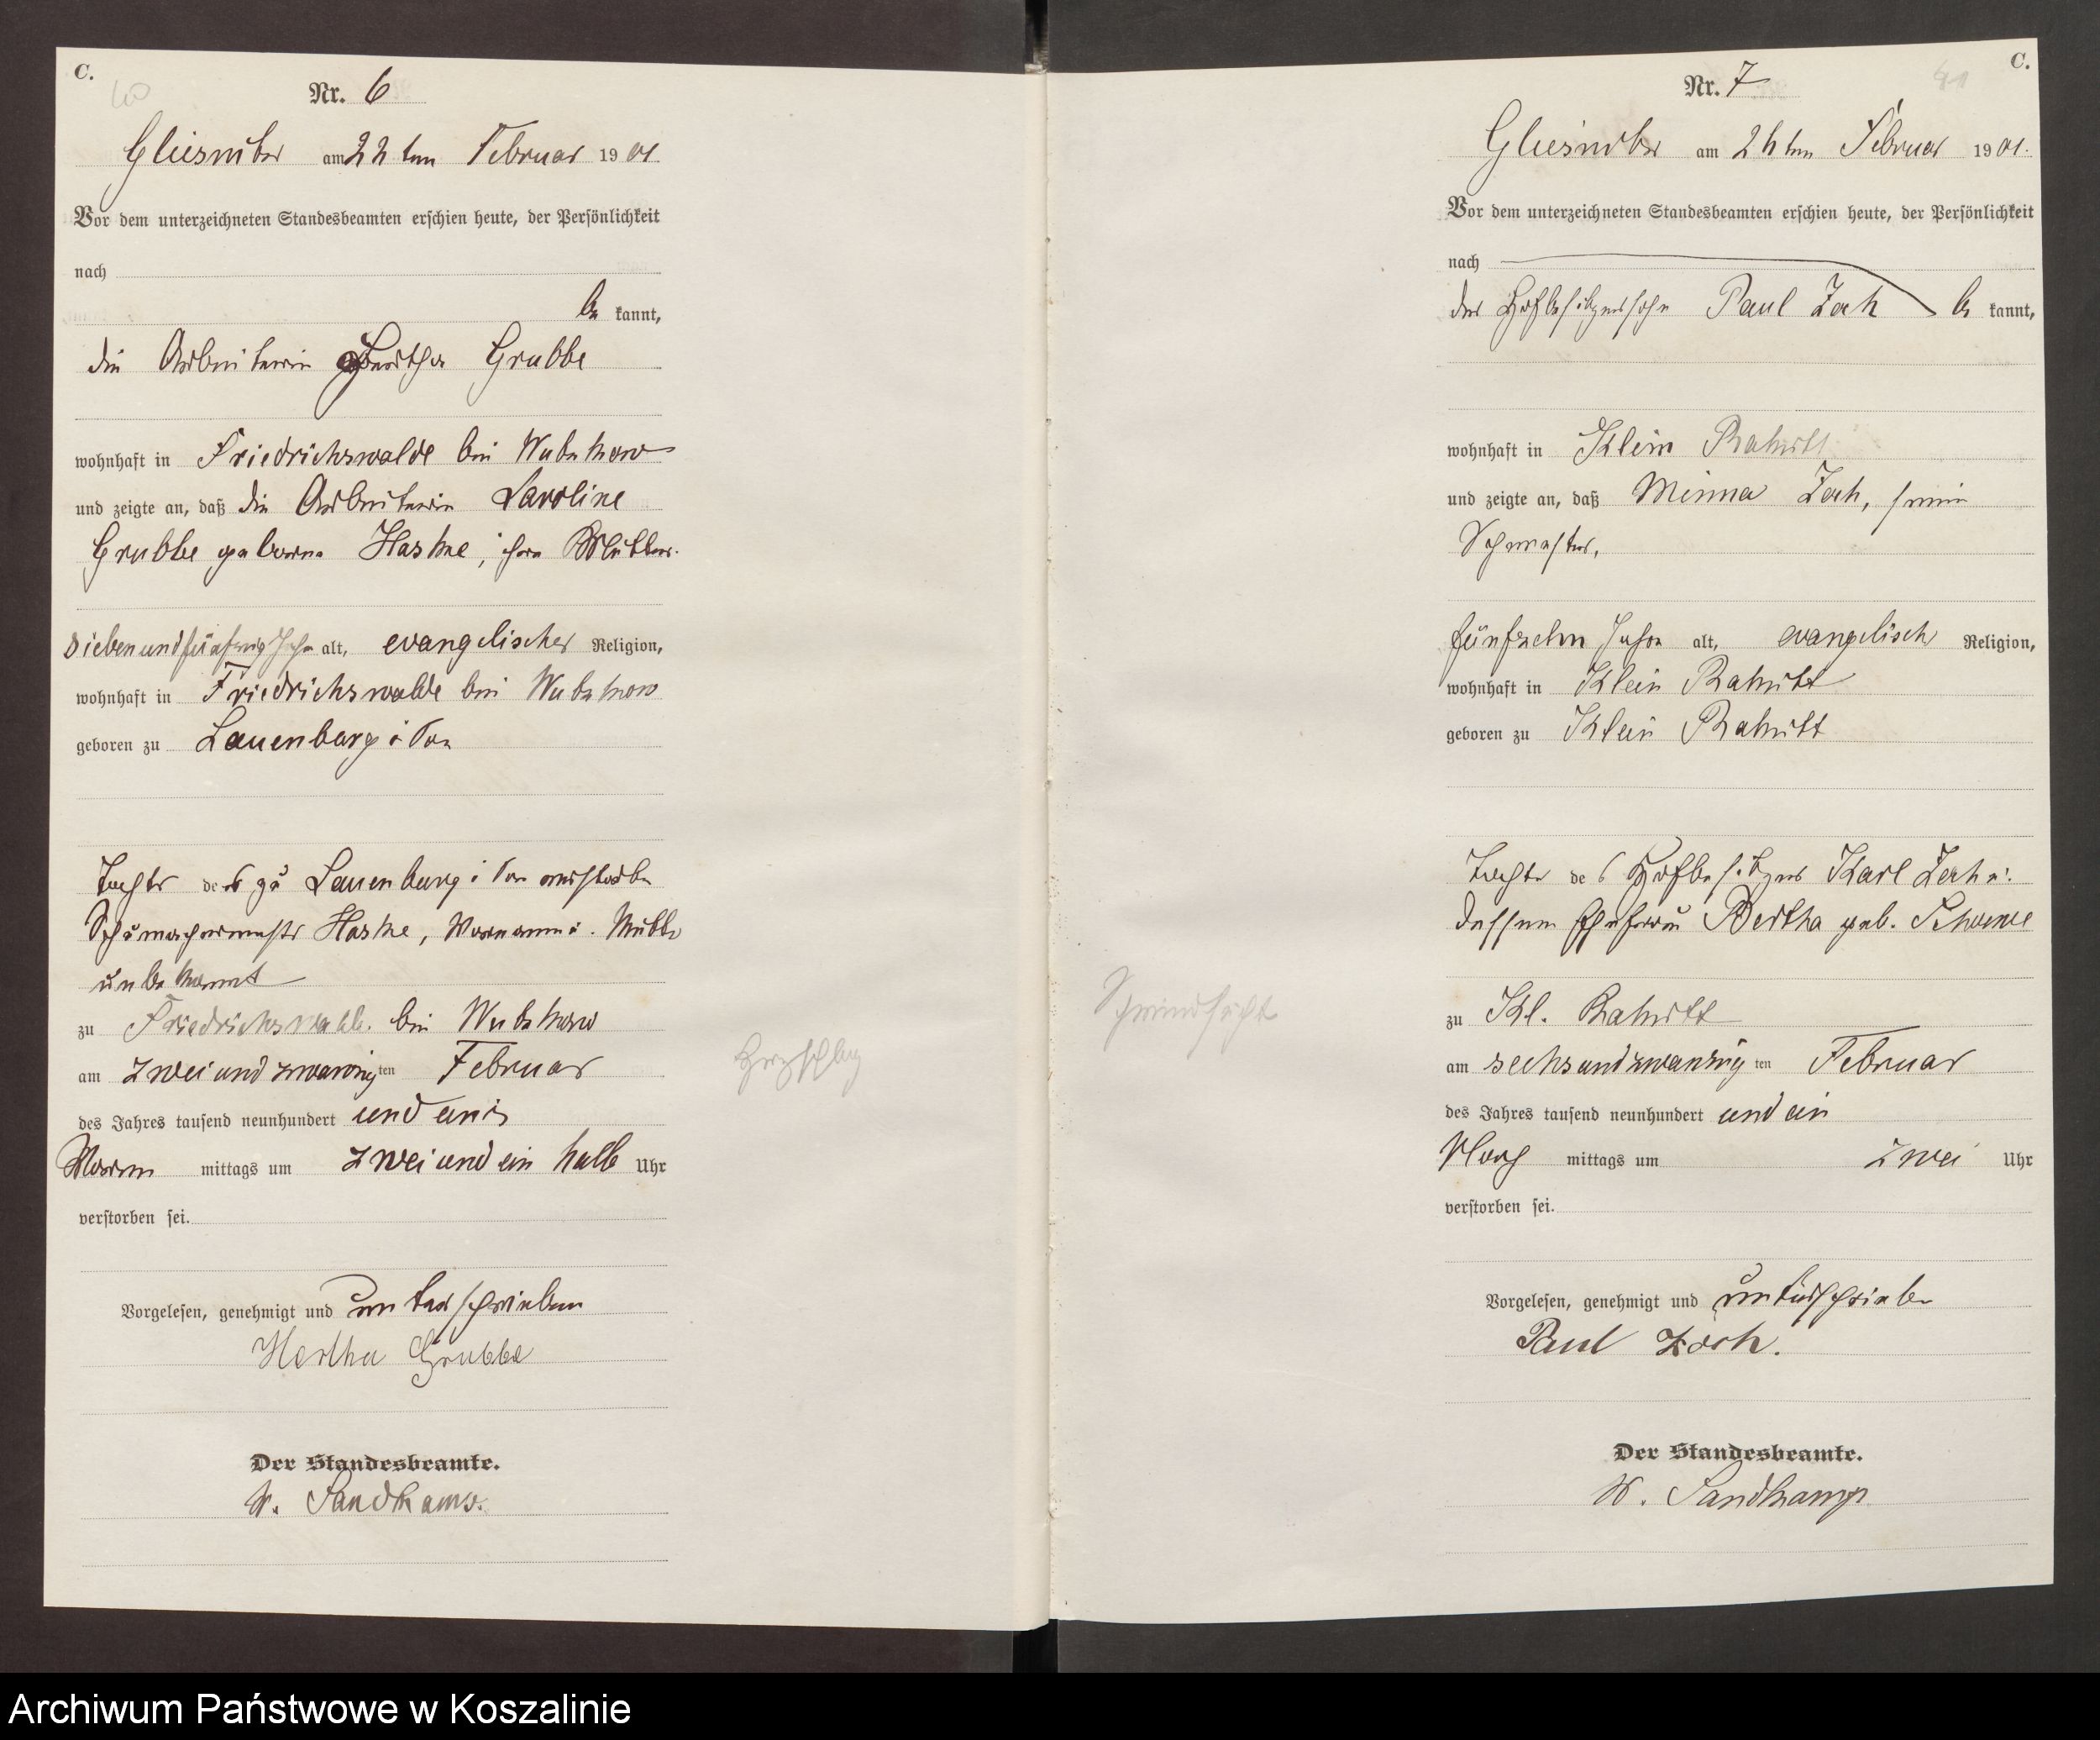 C.
40
Nr. 6
Gliesnitz am 22ten Februar 1901.
Vor dem unterzeichneten Standesbeamten erschien heute, der Persönlichkeit
nach
be kannt,
die Arbeiterin Hertha Grubbe
wohnhaft in Friedrichswalde bei Wutzkow
und zeigte an, daß die Arbeiterin Caroline
Grubbe geborne Haske, ihre Mutter.
Siebenundfünfzig Jahr alt, evangelischer Religion,
wohnhaft in Friedrichswalde bei Wutzkow
geboren zu Lauenburg i Pom
Tochter des zu Lauenburg i Pom verstorbe
Schumachermeister Haske, Vorname u. Mutter
unbekannt
zu Friedrichswalde bei Wutzkow
am zweiundzwanzigten Februar
des Jahres tausend neunhundert und eins
Vorm mittags um zwei und ein halb Uhr
verstorben sei.
Vorgelesen, genehmigt und unterschrieben
Hertha Grubbe
Der Standesbeamte.
W. Sandkamp.
Herzschlag
Nr. 7
C.
41
am 26ten Februar 1901.
Vor dem unterzeichneten Standesbeamten erschien heute, der Persönlichkeit
nach
der Hofbesitzersohn Paul Zach be kannt,
wohnhaft in Klein Rakitt
und zeigte an, daß Minna Zach, seine
Schwester,
fünfzehn Jahre alt, evangelisch Religion,
wohnhaft in Klein Rakitt
geboren zu Klein Rakitt
Tochter des Hofbesitzers Karl Zach u.
dessen Ehefrau Bertha geb.
zu Kl. Rakitt
am sechsundzwanzigten Februar
des Jahres tausend neunhundert und ein
Nach mittags um zwei Uhr
verstorben sei.
Vorgelesen, genehmigt und unterschrieben
Paul Zach.
Der Standesbeamte.
W. Sandkamp
Schwindsucht
Archiwum Państwowe w Koszalinie